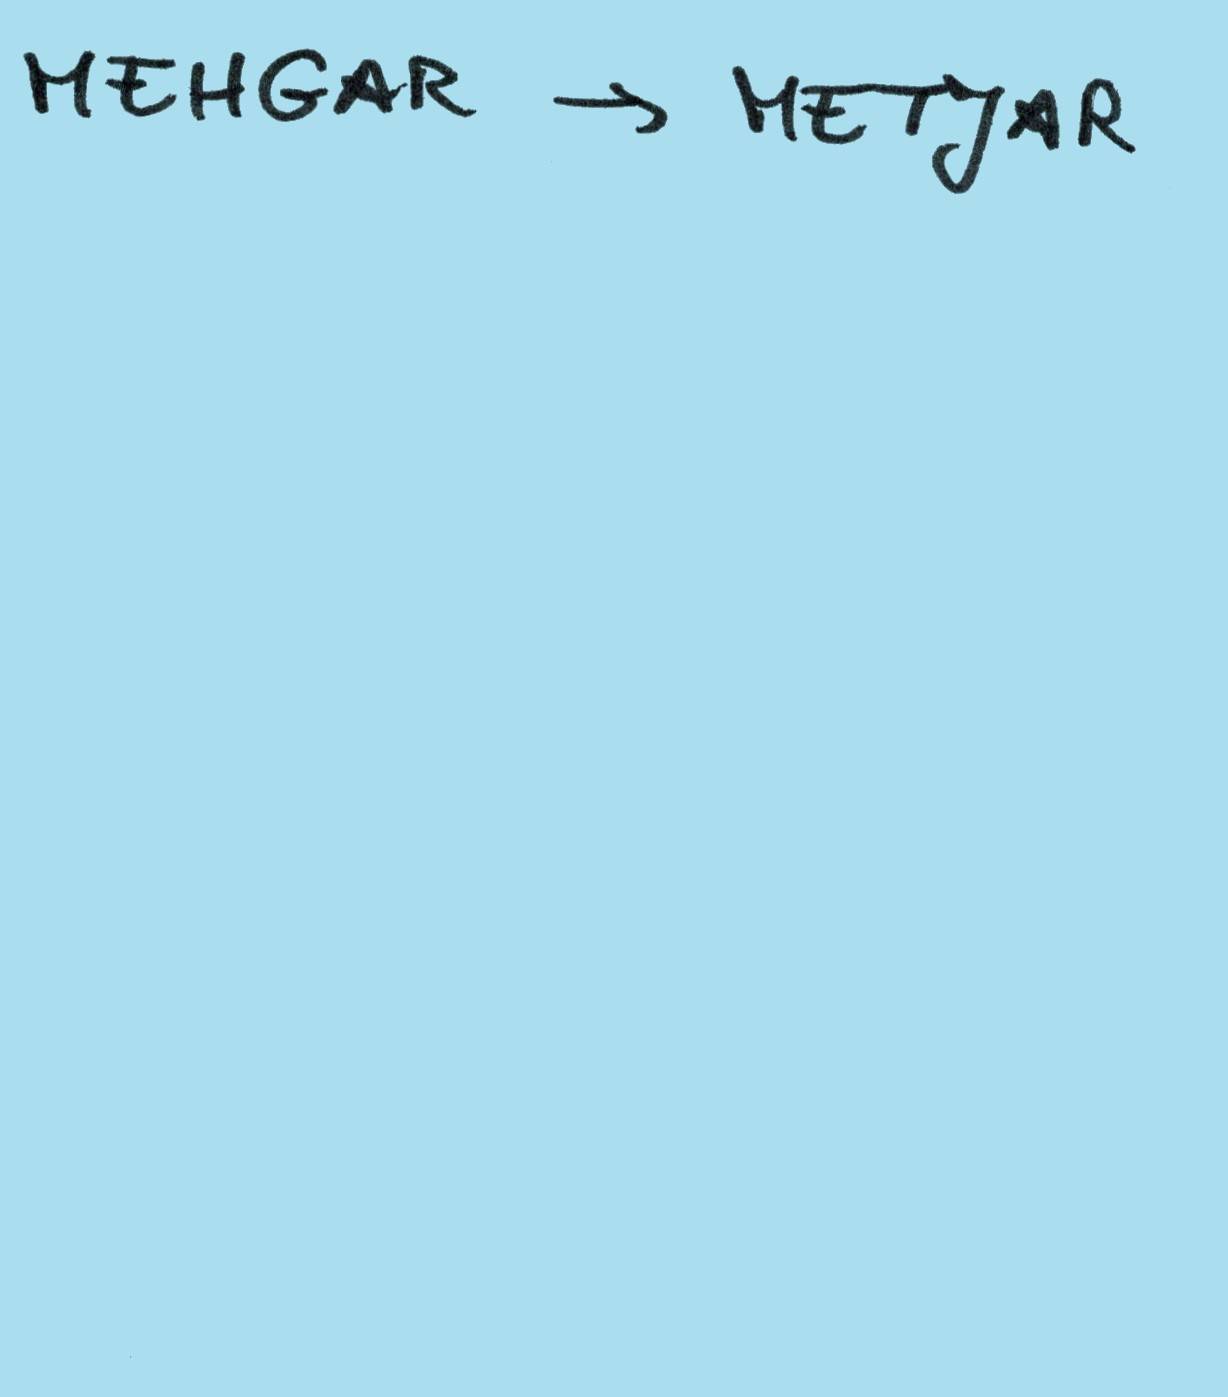 MEHGAR → METJAR